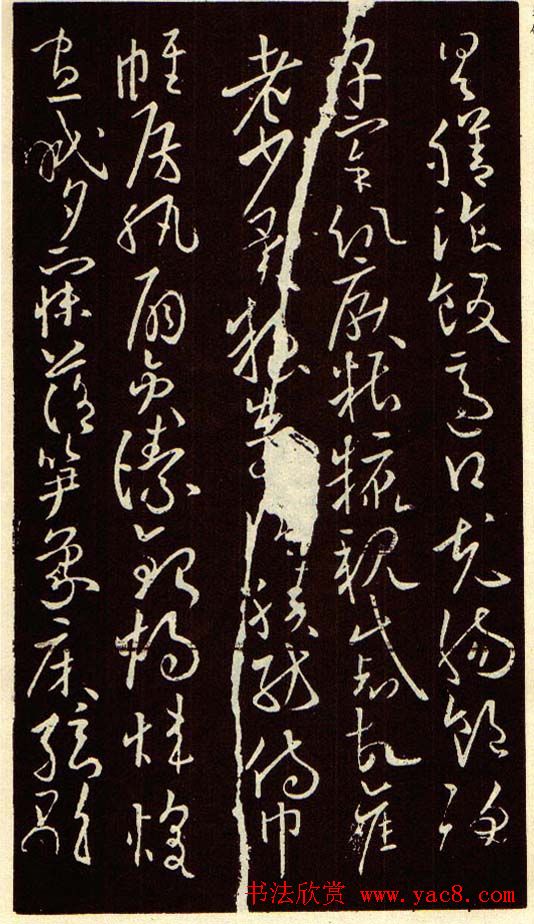 具膳飡飯適口充腸飽飫
烹宰飢厭糟糠親戚故舊
老少異糧妾績紡侍巾
帷房紈扇員潔銀燭煒煌
晝眠夕寐藍筍象床弦歌
书法欣赏 www.yac8.com